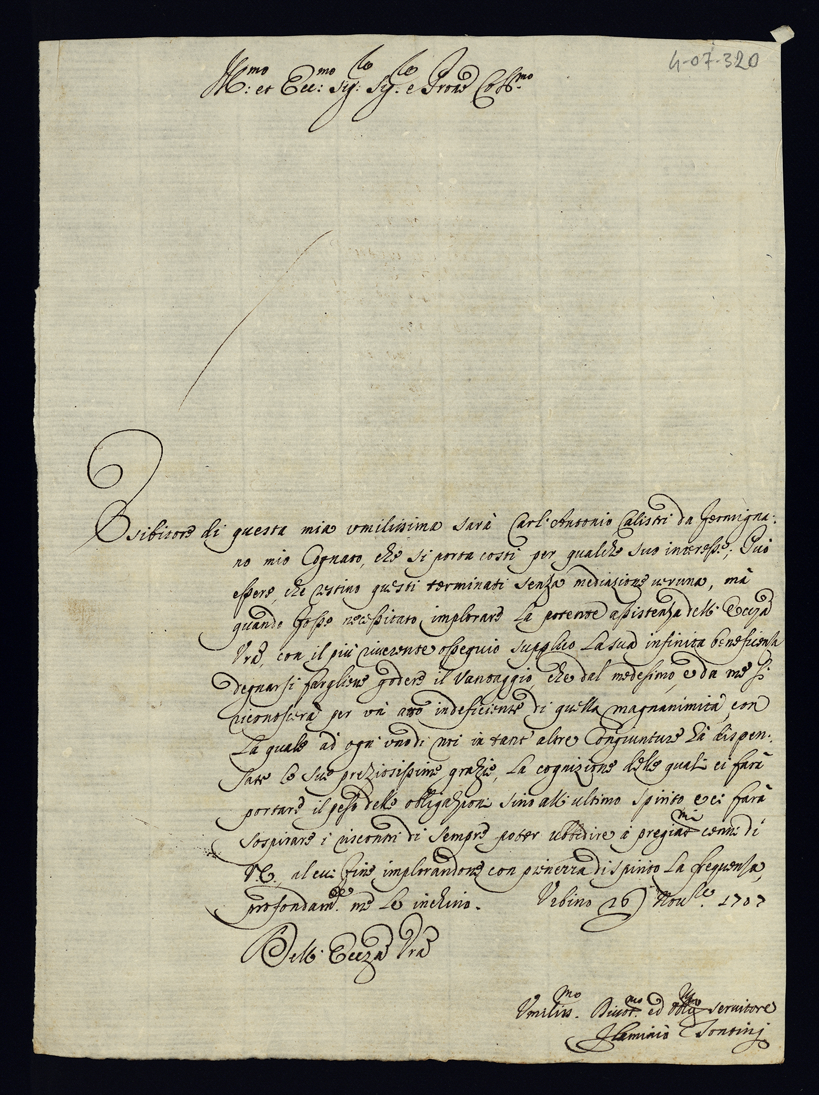 4-07-320
Ill:mo et Ecc:mo Sig: Sig:re e Prone Coll:mo
Esibitore di questa mia umilissima sarà Carl' Antonio Calistri da Fermigna:
no mio Cognato, che si porta costì per qualche suo interesse; Può
essere che restino questi terminati senza mediazione veruna, mà
quando fosse necessitato implorare la potente assistenza dell' Eccza
Vra, con il più riverente ossequio supplico la sua infinita beneficenza
degnarsi fargliene godere il vantaggio, che dal medesimo, e da me si
riconoscerà per un' atto indeficiente di quella magnanimità, con
la quale ad ogn' uno di noi in tant' altre congiunture hà dispen:
sate le sue preziosissime grazie, la cognizione delle quali ci farà
portare il peso delle obligazioni sino all' ultimo spirito, e ci farà
sospirare i riscontri di sempre poter ubbidire à pregiat:mi cenni di
VE, al cui fine implorandone con pienezza di spirito la frequenza,
profondam:te me le inchino. Urbino 26 Nou:re 1707
Dell' Eccza Vra
Umiliss:mo Diuot:mo ed obblig:mo seruitore
Flaminio